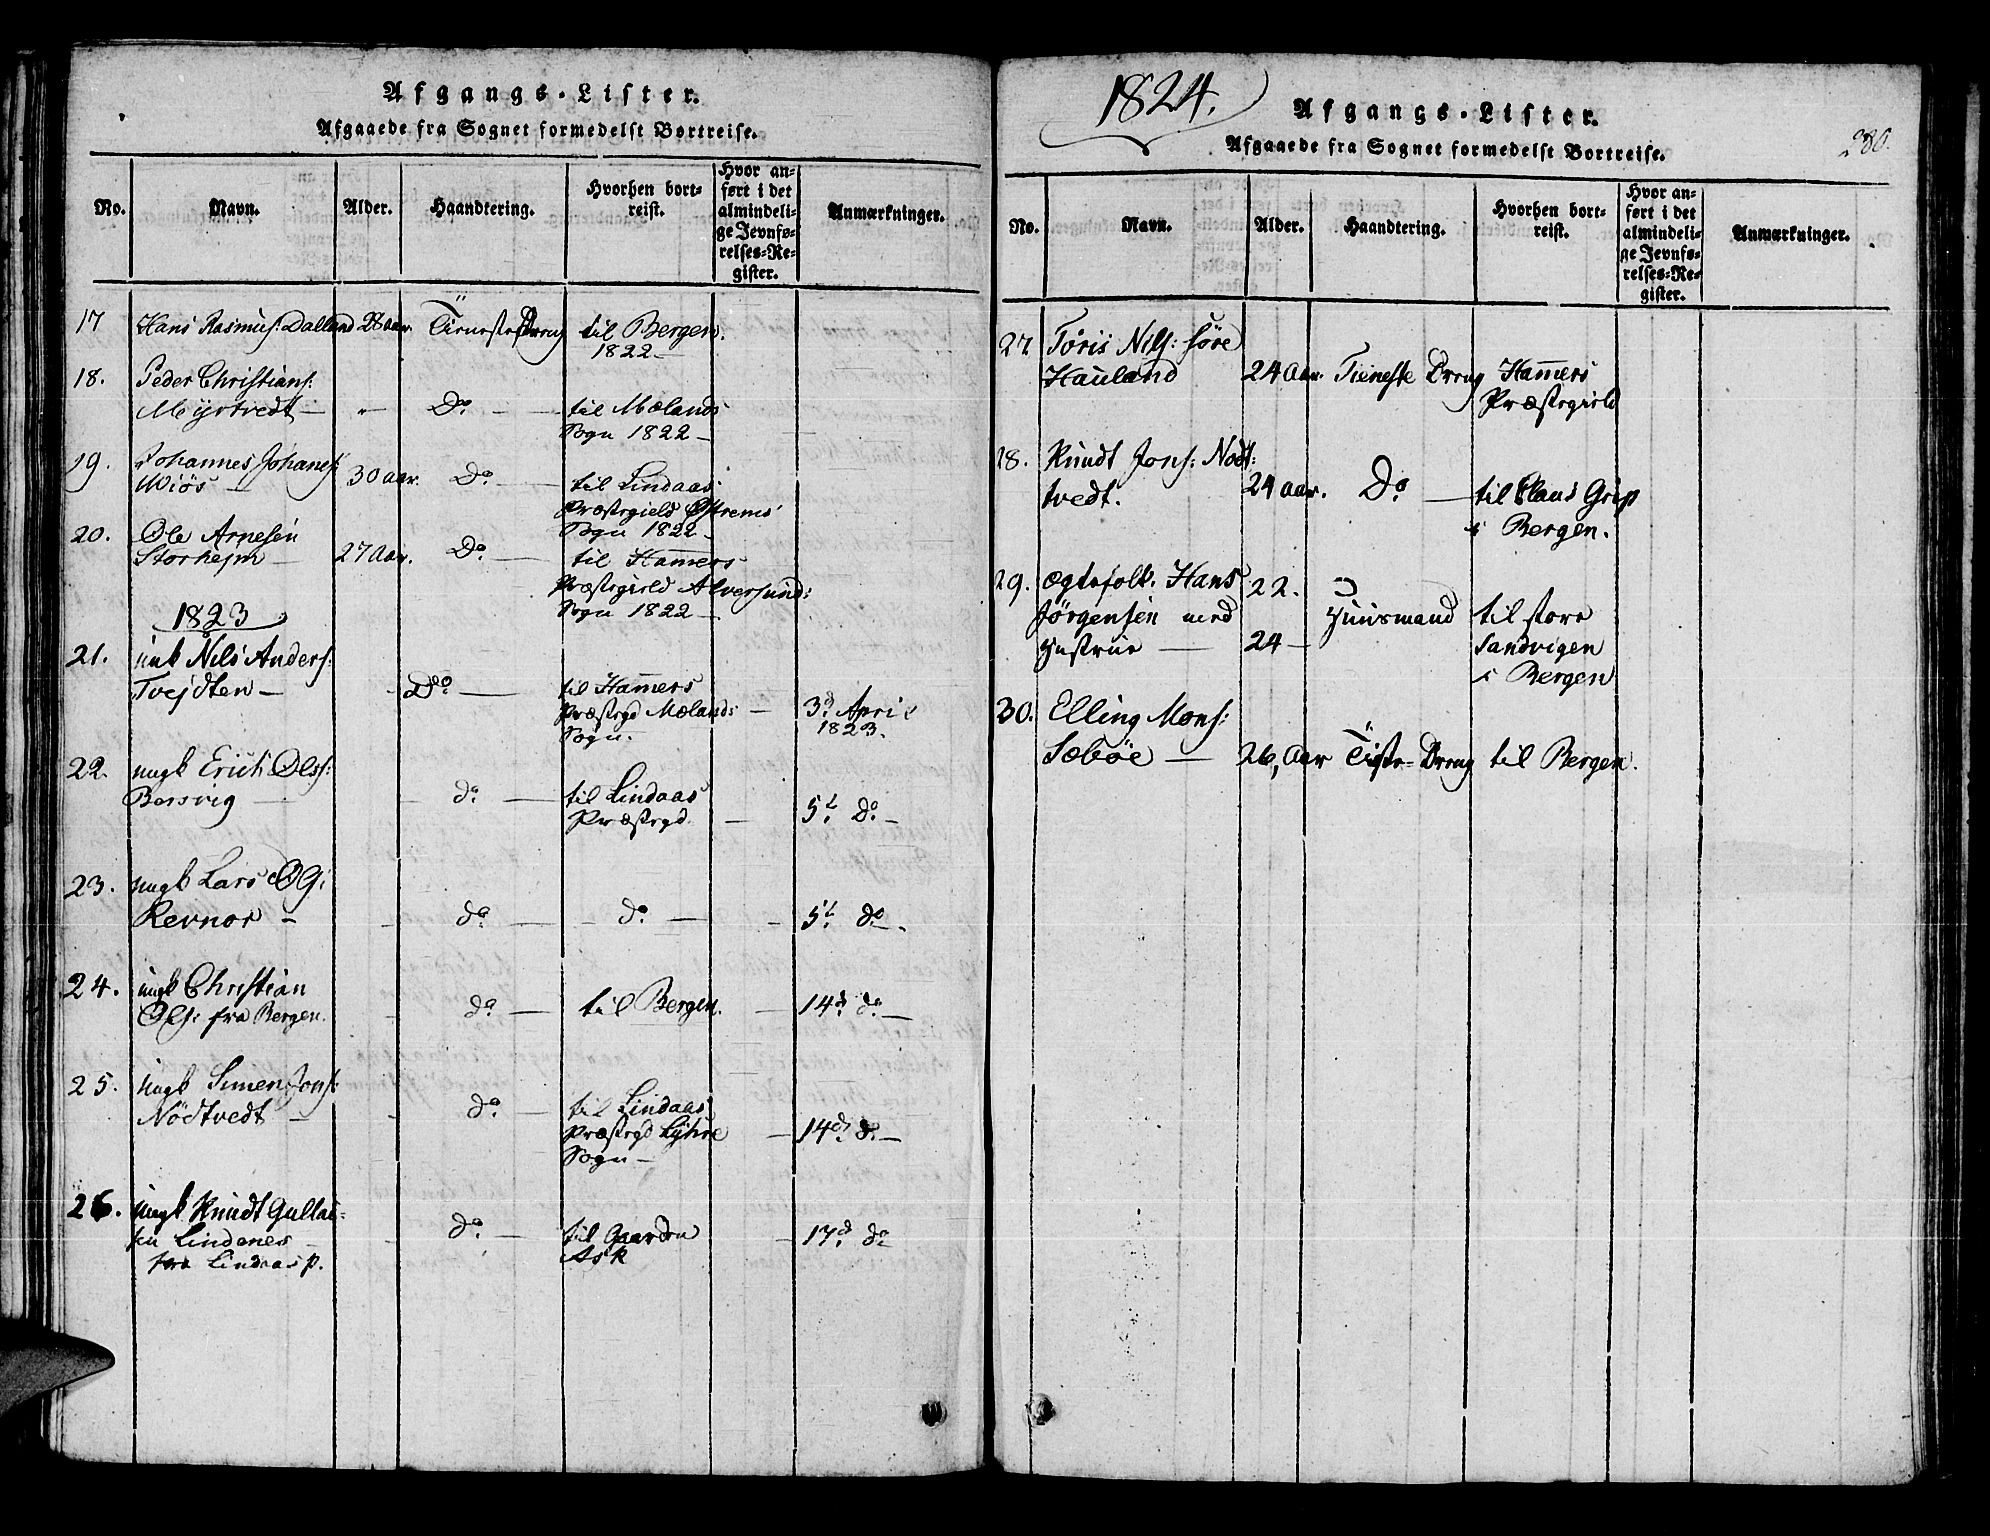 Afgangs-Lister.
Afgaaede fra Sognet formedelst Bortreise.
No. Navn. Alder. Haandtering. Hvorhen bortreist. Hvor anført i det almindelige Jevnførelses-Register. Anmærkninger.
17 Hans Rasmus: Dalland 28 aar. Tieneste Dreng til Bergen.
1822 —
18. Peder Christians:
Myrtvedt — " Do. — til Mælands
Sogn 1822 —
19. Johannes Johanes:
Miøs — 30 aar. Do. — til Lindaas
Præstegield Østrems
Sogn 1822 —
20. Ole Arnesen
Storhejm — 27 Aar. Do. — til Hamers
Præstegield Alversund:
Sogn 1822 —
1823
21. Nils Anders:
Tvejdten — Do — til Hamers
Præstegd Mælands — 3d April
Sogn. 1823.
22. ungk Erich Ols:
Bersvig — do. — til Lindaas
Præstegd. — 5t Do —
23. ungk Lars O G:
Revnor — do — do. — 5t do.
24. ungk Christian
Ols: fra Bergen. do. — til Bergen. — 14d do. —
25. ungk Simen Jons:
Nödtvedt — do. — til Lindaas
Præstegd Lyhre — 14d do. —
Sogn —
26. ungk Knudt Gullac-
sen Lindenes — do. — til Gaarden — 17d do
fra Lindaas p. Ask
1824.
Afgangs-Lister.
Afgaaede fra Sognet formedelst Bortreise.
280.
No. Navn. Alder. Haandtering. Hvorhen bortreist. Hvor anført i det almindelige Jevnførelses-Register. Anmærkninger.
27. Töris Nils: søre
Hauland 24 Aar. Tieneste Dreng Hamers
Præstegield
28. Knudt Jons: Nodt:
tvedt. 24 aar. Do — til Claus Grip
i Bergen.
29. Ægtefolk. Hans 22.
Jörgensen med Huusmand til store
Hustrue — 24 — Sandvigen
i Bergen
30. Elling Mons:
Sæbøe — 26, Aar Tiste-Dreng til Bergen.